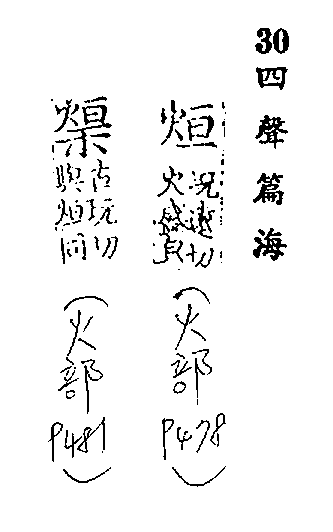 30四聲篇海
烜
況遠切
火盛皃
(火部P478)
古玩切
與烜同
(火部P481)